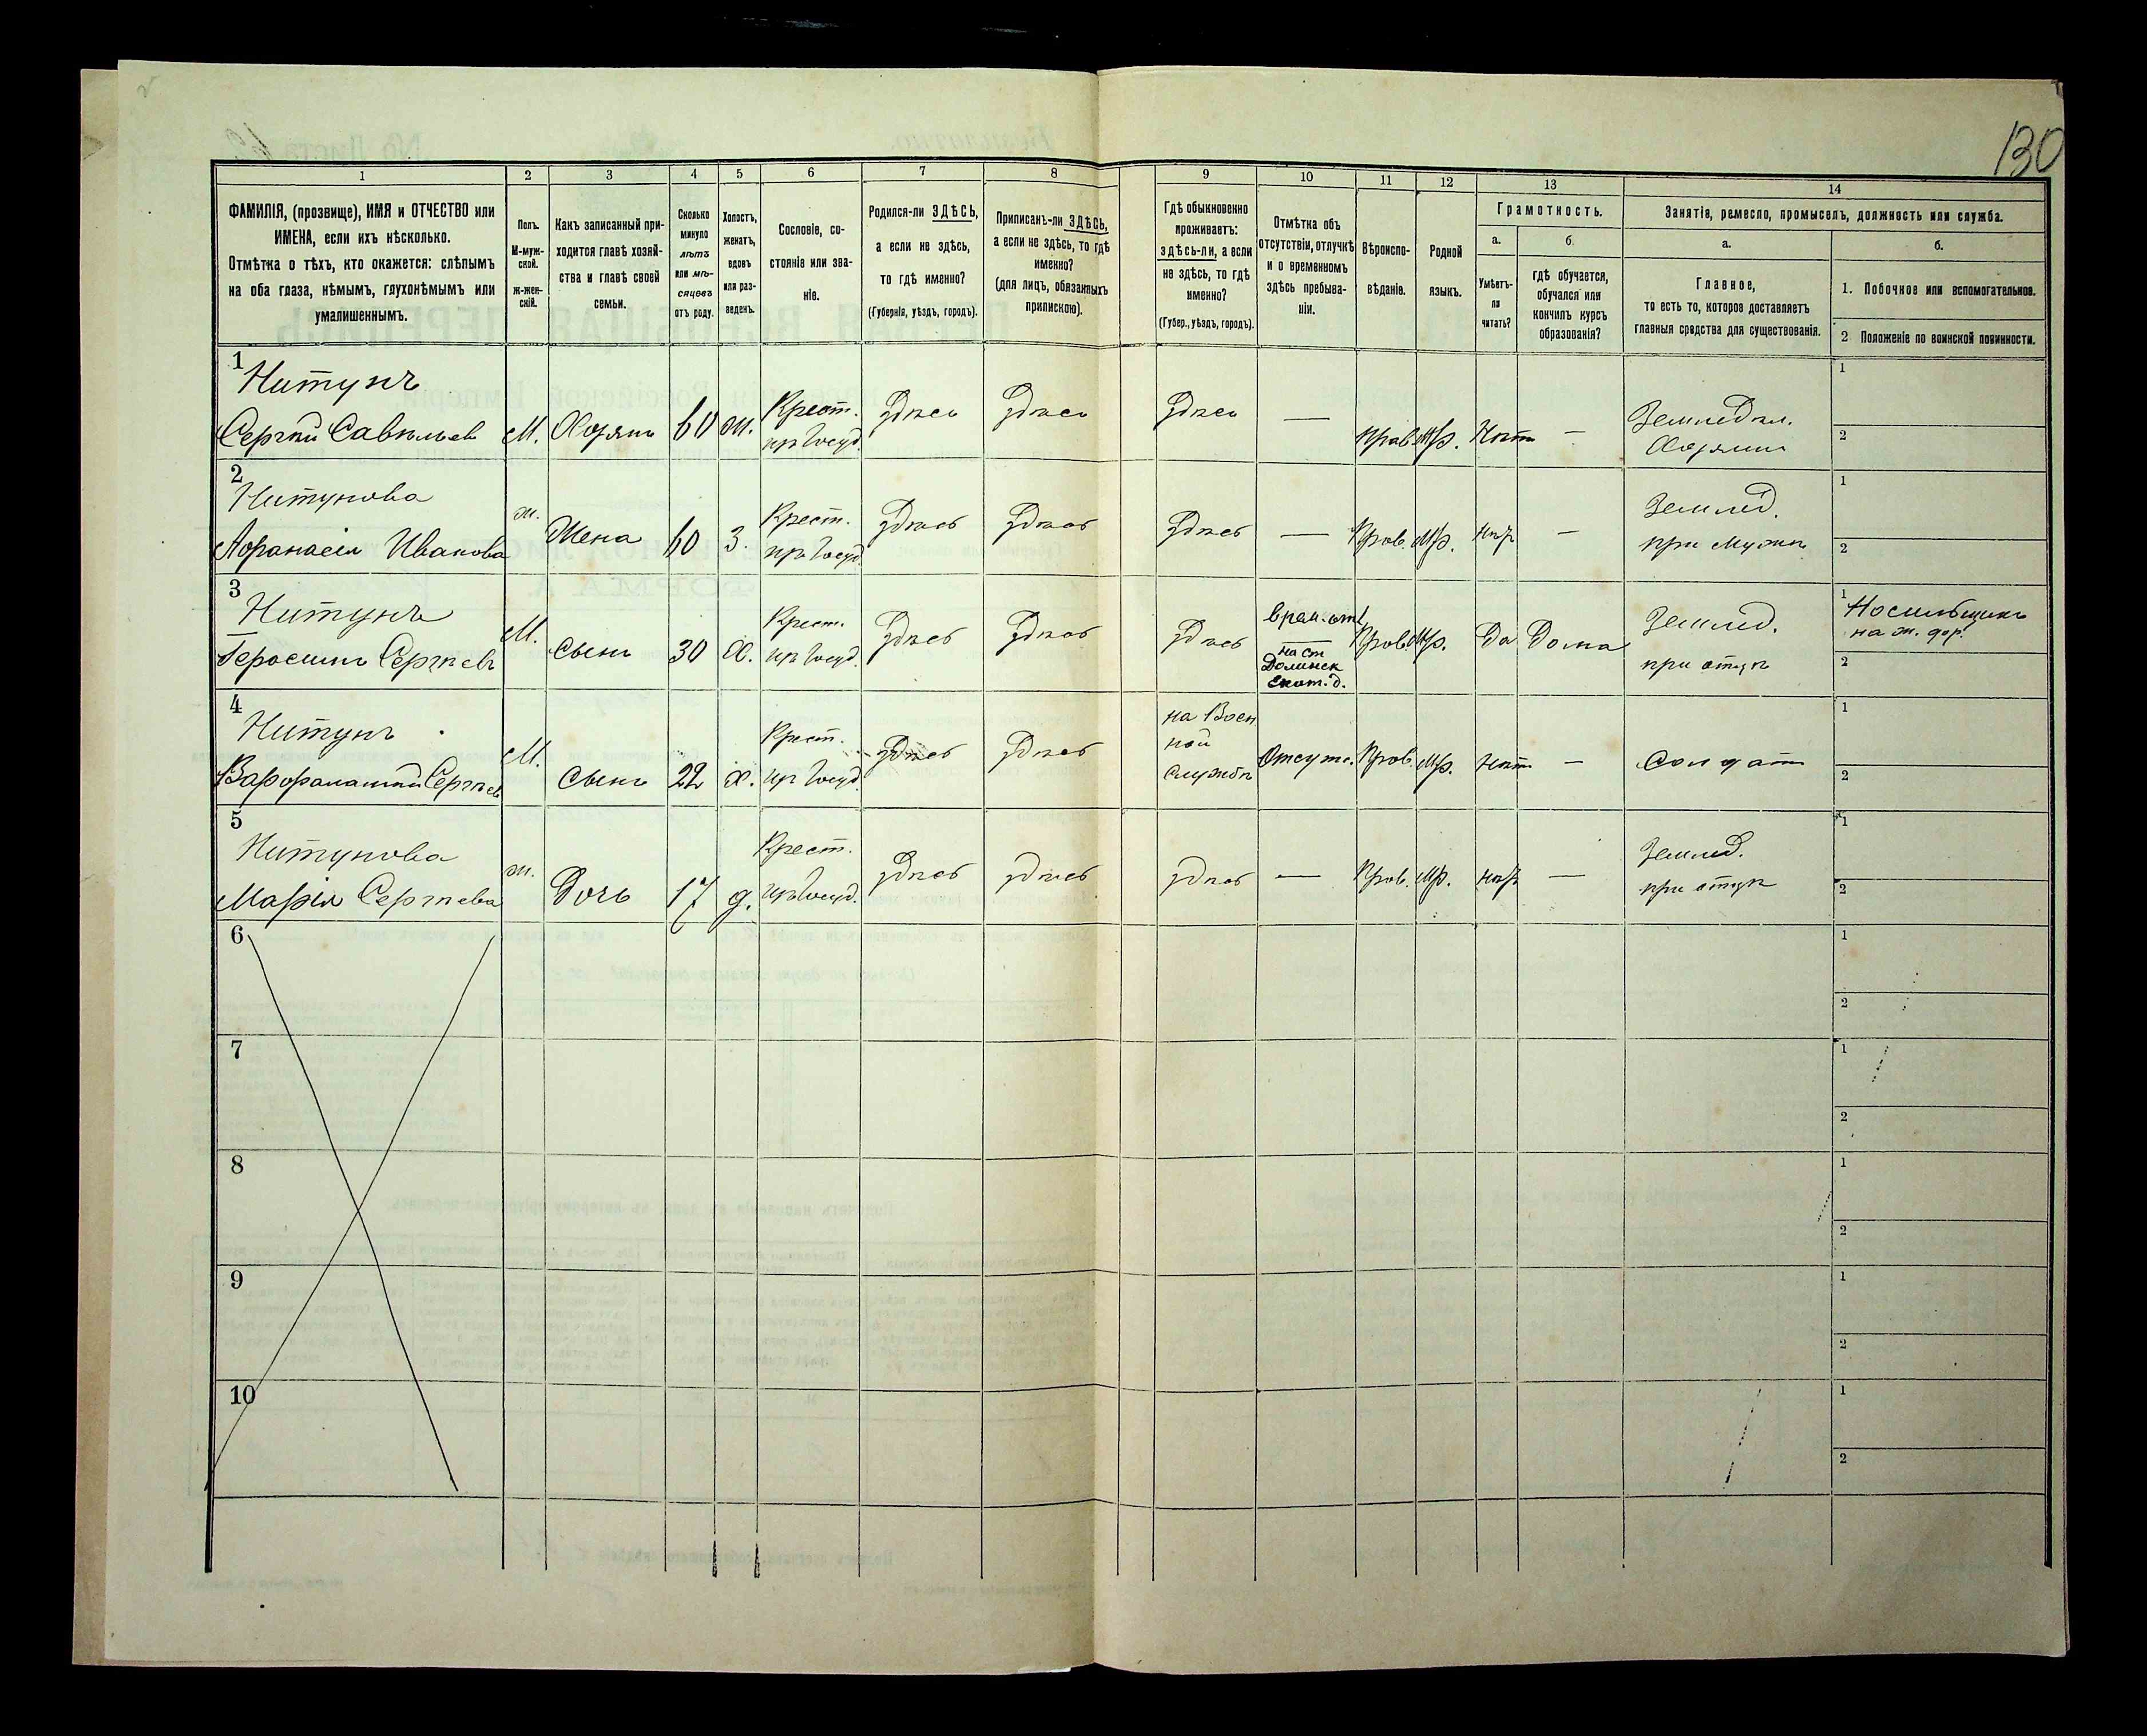 130
1 2 3 4 5 6 7 8 9 10 11 12 13 14
ФАМИЛІЯ, (прозвище), ИМЯ и ОТЧЕСТВО или
ИМЕНА, если ихъ нѣсколько.
Отмѣтка о тѣхъ, кто окажется: слѣпымъ
на оба глаза, нѣмымъ, глухонѣмымъ или
умалишеннымъ.
Полъ.
М-муж-
ской.
Ж-жен-
скій.
Какъ записанный при-
ходится главѣ хозяй-
ства и главѣ своей
семьи.
Сколько
минуло
лѣтъ
или мѣ-
сяцевъ
отъ роду.
Холостъ,
женатъ,
вдовъ
или раз-
веденъ.
Сословіе, со-
стояніе или зва-
ніе.
Родился-ли ЗДѢСЬ,
а если не здѣсь,
то гдѣ именно?
(Губернія, уѣздъ, городъ).
Приписанъ-ли ЗДѢСЬ,
а если не здѣсь, то гдѣ
именно?
(для лицъ, обязанныхъ
припискою).
Гдѣ обыкновенно
проживаетъ:
здѣсь-ли, а если
не здѣсь, то гдѣ
именно?
(Губер., уѣздъ, городъ).
Отмѣтка объ
отсутствіи, отлучкѣ
и о временномъ
здѣсь пребыва-
ніи.
Вѣроиспо-
вѣданіе.
Родной
языкъ.
Грамотность.
а.
Умѣетъ-
ли
читать?
б.
гдѣ обучается,
обучался или
кончилъ курсъ
образованія?
Занятіе, ремесло, промыселъ, должность или служба.
а.
Главное,
то есть то, которое доставляетъ
главныя средства для существованія.
б.
1. Побочное или вспомогательное.
2 Положеніе по воинской повинности.
1
Нитунъ
Сергѣй Савельев М. Хозяинъ 60 ж. Крест. из Госуд. здѣсь здѣсь здѣсь — Прав. Мр. Нѣтъ — Земледѣл. Хозяинъ
1
2
2
Нитунова
Афанасія Иванова ж. Жена 60 З. Крест. из Госуд. здѣсь здѣсь здѣсь — Прав. Мр. нѣт — Земледѣл. при Мужѣ
1
2
3
Нитунъ
Геросимъ Сергѣевъ М. Сынъ 30 Х. Крест. из Госуд. здѣсь здѣсь здѣсь врем. от. на ст Долинск Прав. Мр. Да Дома Землед. при отцѣ
1 Носильщикъ на ж. дор.
2
4
Нитунъ
Сергѣев М. Сынъ 22 х. Крест. из Госуд. здѣсь здѣсь на Воен ной Службѣ Отсутс. Прав. Мр. нѣтъ — Солдатъ
1
2
5
Нитунова
Марія Сергѣева ж. Дочь 17 д. Крест. из Госуд. здѣсь здѣсь здѣсь — Прав. Мр. нѣт — Землед. при отцѣ
1
2
6
1
2
7
1
2
8
1
2
9
1
2
10
1
2